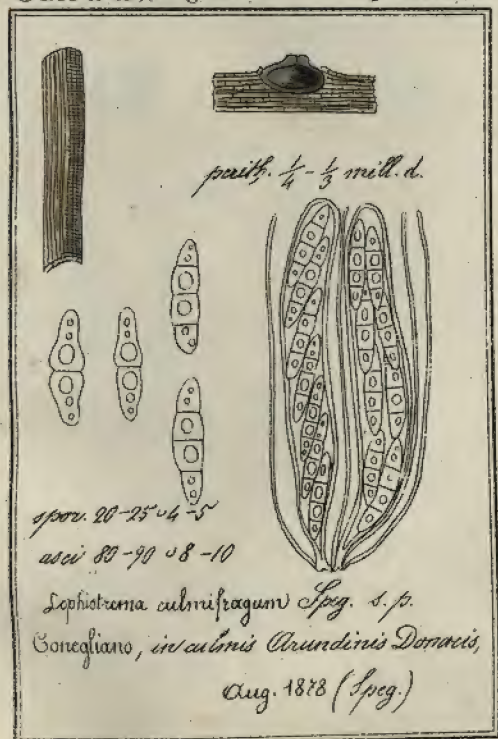 perith. 1/4 - 1/3 mill. d.
spor. 20-25 ∪ 4-5
asci 80-90 ∪ 8-10
Lophiotrema culmifragum Speg. s. p.
Conegliano, in culmis Arundinis Donacis,
Aug. 1878 (Speg.)